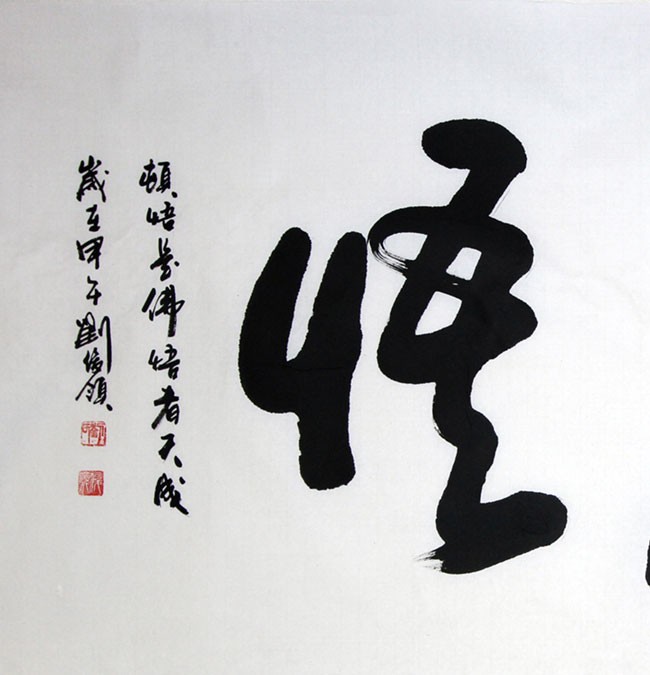 悟
頓悟是佛悟者天成
歲在甲午劉俊領